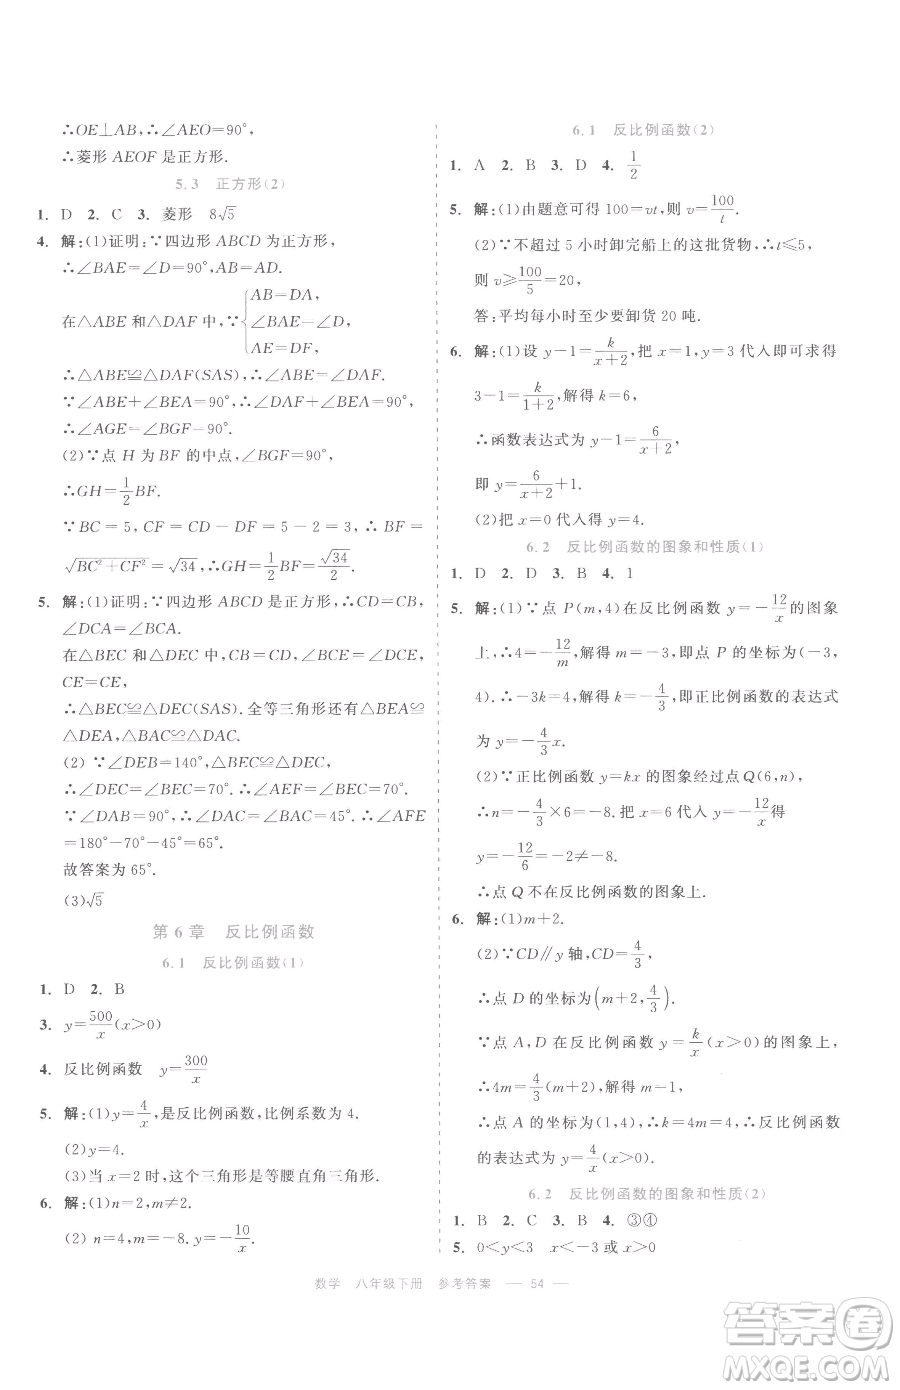 ∴OE⊥AB,∴∠AEO=90°,
∴菱形 AEOF 是正方形.
5.3 正方形(2)
1. D 2. C 3. 菱形 8√5
4. 解:(1)证明:∵四边形 ABCD 为正方形,
∴∠BAE=∠D=90°,AB=AD.
在△ABE 和△DAF 中,∵{AB=DA,
∠BAE=∠D,
AE=DF,
∴△ABE≌△DAF(SAS),∴∠ABE=∠DAF.
∵∠ABE+∠BEA=90°,∴∠DAF+∠BEA=90°,
∴∠AGE=∠BGF=90°.
(2)∵点 H 为 BF 的中点,∠BGF=90°,
∴GH=1/2BF.
∵BC=5,CF=CD-DF=5-2=3,∴BF=
√(BC²+CF²)=√34,∴GH=1/2BF=√34/2.
5. 解:(1)证明:∵四边形 ABCD 是正方形,∴CD=CB,
∠DCA=∠BCA.
在△BEC 和△DEC 中,CB=CD,∠BCE=∠DCE,
CE=CE,
∴△BEC≌△DEC(SAS).全等三角形还有△BEA≌
△DEA,△BAC≌△DAC.
(2)∵∠DEB=140°,△BEC≌△DEC,
∴∠DEC=∠BEC=70°.∴∠AEF=∠BEC=70°.
∵∠DAB=90°,∴∠DAC=∠BAC=45°.∴∠AFE
=180°-70°-45°=65°.
故答案为 65°.
(3)√5
第 6 章 反比例函数
6.1 反比例函数(1)
1. D 2. B
3. y=500/x(x>0)
4. 反比例函数 y=300/x
5. 解:(1)y=4/x,是反比例函数,比例系数为 4.
(2)y=4.
(3)当 x=2 时,这个三角形是等腰直角三角形.
6. 解:(1)n=2,m≠2.
(2)n=4,m=-8.y=-10/x
6.1 反比例函数(2)
1. A 2. B 3. D 4. 1/2
5. 解:(1)由题意可得 100=vt,则 v=100/t.
(2)∵不超过 5 小时卸完船上的这批货物,∴t≤5,
则 v≥100/5=20,
答:平均每小时至少要卸货 20 吨.
6. 解:(1)设 y-1=k/(x+2),把 x=1,y=3 代入即可求得
3-1=k/(1+2),解得 k=6,
∴函数表达式为 y-1=6/(x+2),
即 y=6/(x+2)+1.
(2)把 x=0 代入得 y=4.
6.2 反比例函数的图象和性质(1)
1. D 2. D 3. B 4. 1
5. 解:(1)∵点 P(m,4)在反比例函数 y=-12/x的图象
上,∴4=-12/m,解得 m=-3,即点 P 的坐标为(-3,
4).∴-3k=4,解得 k=-4/3,即正比例函数的表达式
为 y=-4/3x.
(2)∵正比例函数 y=kx 的图象经过点 Q(6,n),
∴n=-4/3×6=-8.把 x=6 代入 y=-12/x得
y=-12/6=-2≠-8.
∴点 Q 不在反比例函数的图象上.
6. 解:(1)m+2.
(2)∵CD∥y 轴,CD=4/3,
∴点 D 的坐标为(m+2,4/3).
∵点 A,D 在反比例函数 y=k/x(x>0)的图象上,
∴4m=4/3(m+2),解得 m=1.
∴点 A 的坐标为(1,4),∴k=4m=4,∴反比例函数
的表达式为 y=4/x(x>0).
6.2 反比例函数的图象和性质(2)
1. B 2. C 3. B 4. ③④
5. 0<y<3 x<-3 或 x>0
数学 八年级下册 参考答案 — 54 —
答案圈
MXQE.COM